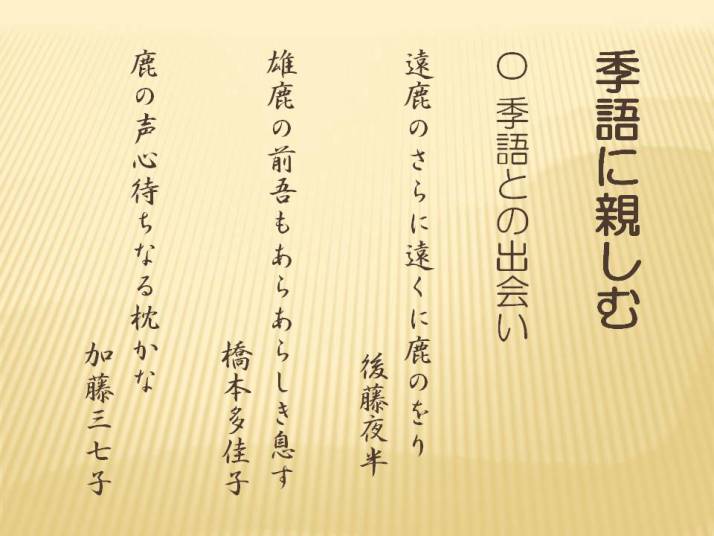 季語に親しむ
〇 季語との出会い
遠鹿のさらに遠くに鹿のをり
後藤夜半
雄鹿の前吾もあらあらしき息す
橋本多佳子
鹿の声心待ちなる枕かな
加藤三七子